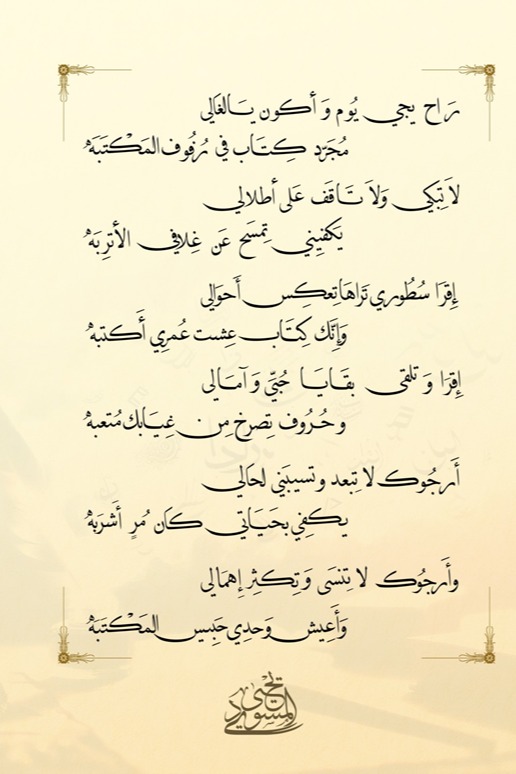 رَاح يجي يُوم وَ أكون يَالغَالي
مُجَرّد كِتَاب في رُفُوف المَكْتَبَهْ
لاَ تِبَكي وَلاَ تَاقَف عَلى أطلالي
يَكفِيني تِمسَح عَن غِلافي الأتربَهْ
إِقرَا سُطُوري تَرَاهَا تِعكِس أَحوَالي
وَإِنَّك كِتَاب عِشت عُمرِي أَكتبهْ
إِقرَا وَ تلقى بقَايَا حُبِّي وَ آمَالي
وحُرُوف تِصرخ مِن غِيَابك مُتعبهْ
أَرجُوك لا تِبعد وتسيبَني لحَالي
يكفِي بحَيَاتي كَان مُرٍ أَشرَبهْ
وأَرجُوك لا تِنسَى وَتِكثِر إِهمَالي
وَأَعِيش وَحدِي حَبِيس المَكْتَبَهْ
يحيى المسوري